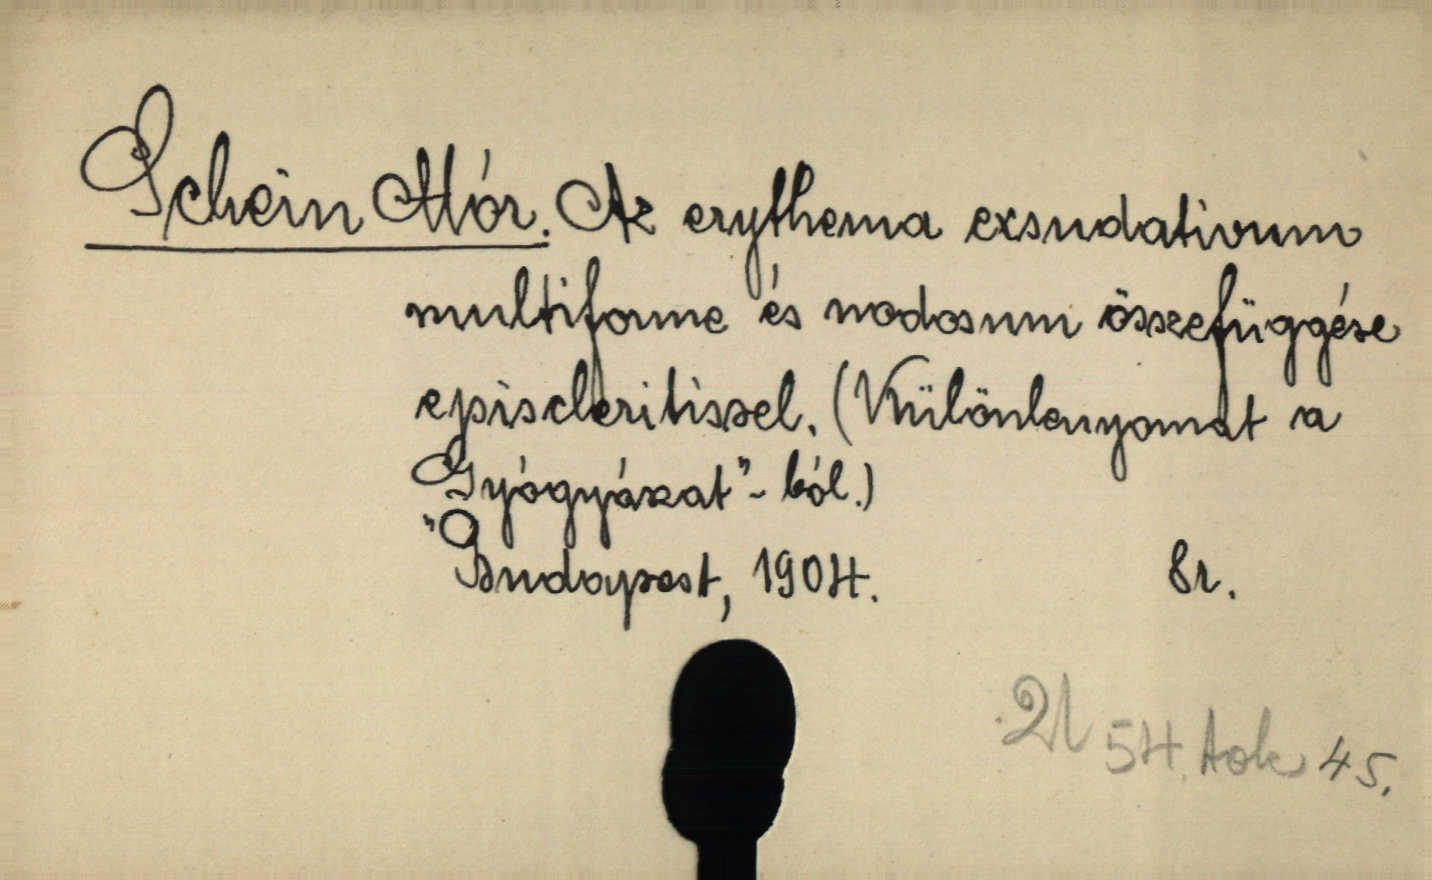 Schein Mór. Az erythema exsudativum
multiforme és nodosum összefüggése
episcleritissel. (Különlenyomat a
"Gyógyászat"-ból.)
Budapest, 1904. 8r.
54. tok 45.